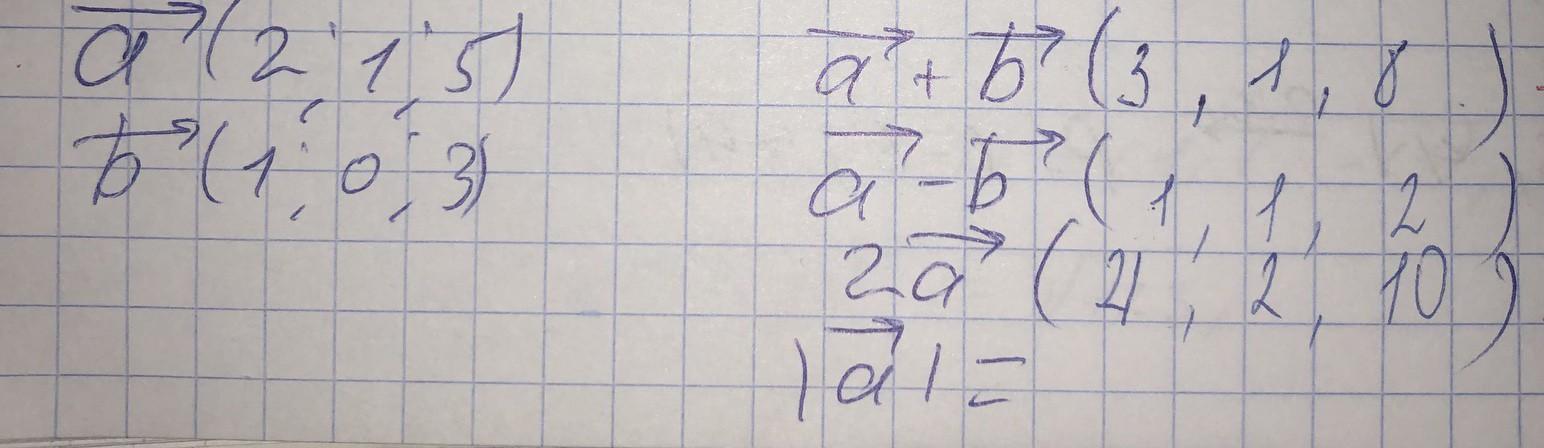 a⃗ (2; 1; 5)
b⃗ (1; 0; 3)
a⃗ + b⃗ (3, 1, 8)
a⃗ - b⃗ (1, 1, 2)
2a⃗ (4, 2, 10)
|a⃗| =